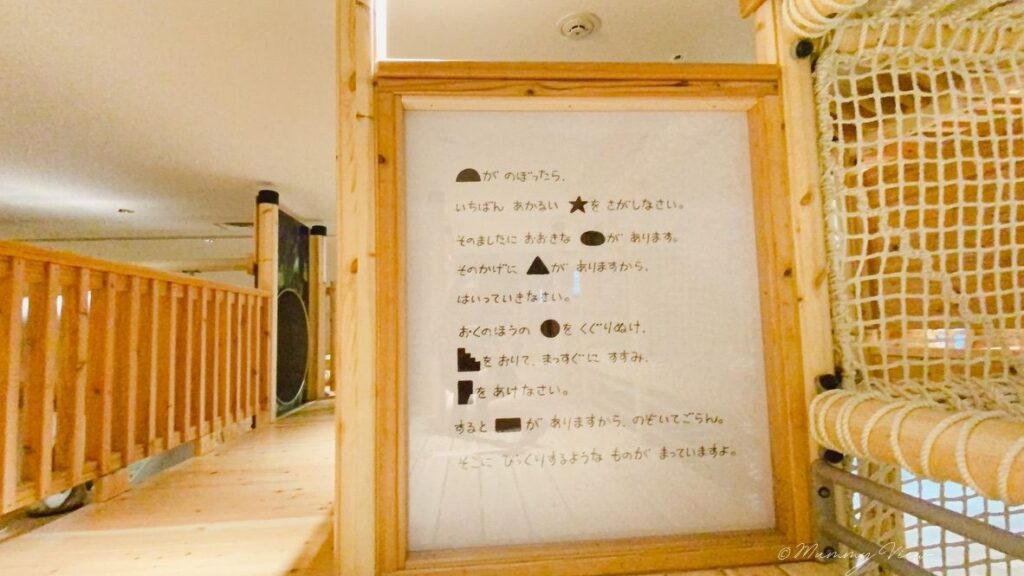 が のぼったら、
いちばん あかるい ★を さがしなさい。
そのましたに おおきな ⬬が あります。
そのかげに ▲が ありますから、
はいっていきなさい。
おくのほうの ●を くぐりぬけ、
を おりて、まっすぐに すすみ、
を あけなさい。
すると ▬が ありますから、のぞいてごらん。
そこに びっくりするような ものが まっていますよ。
© Mummy